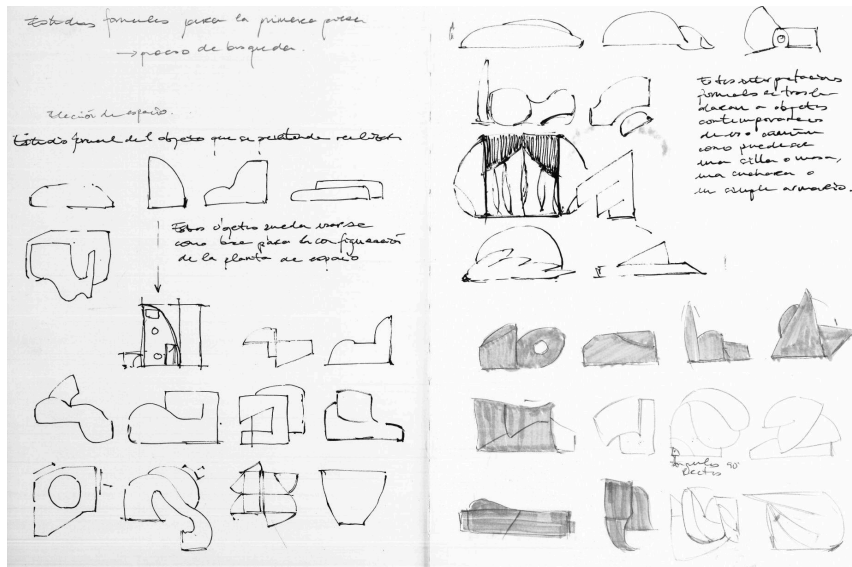 Estudios formales para la primera pieza
→ proceso de busqueda.
Elección de espacio.
Estudio formal del objeto que se pretende realizar
Estos objetos pueden usarse
como base para la configuración
de la planta de espacio
Estas interpretaciones
formales se trasla
a objetos
contemporaneos
de uso común
como puede ser
una silla o mesa,
una cuchara o
un simple armario.
Angulos 90°
Rectos